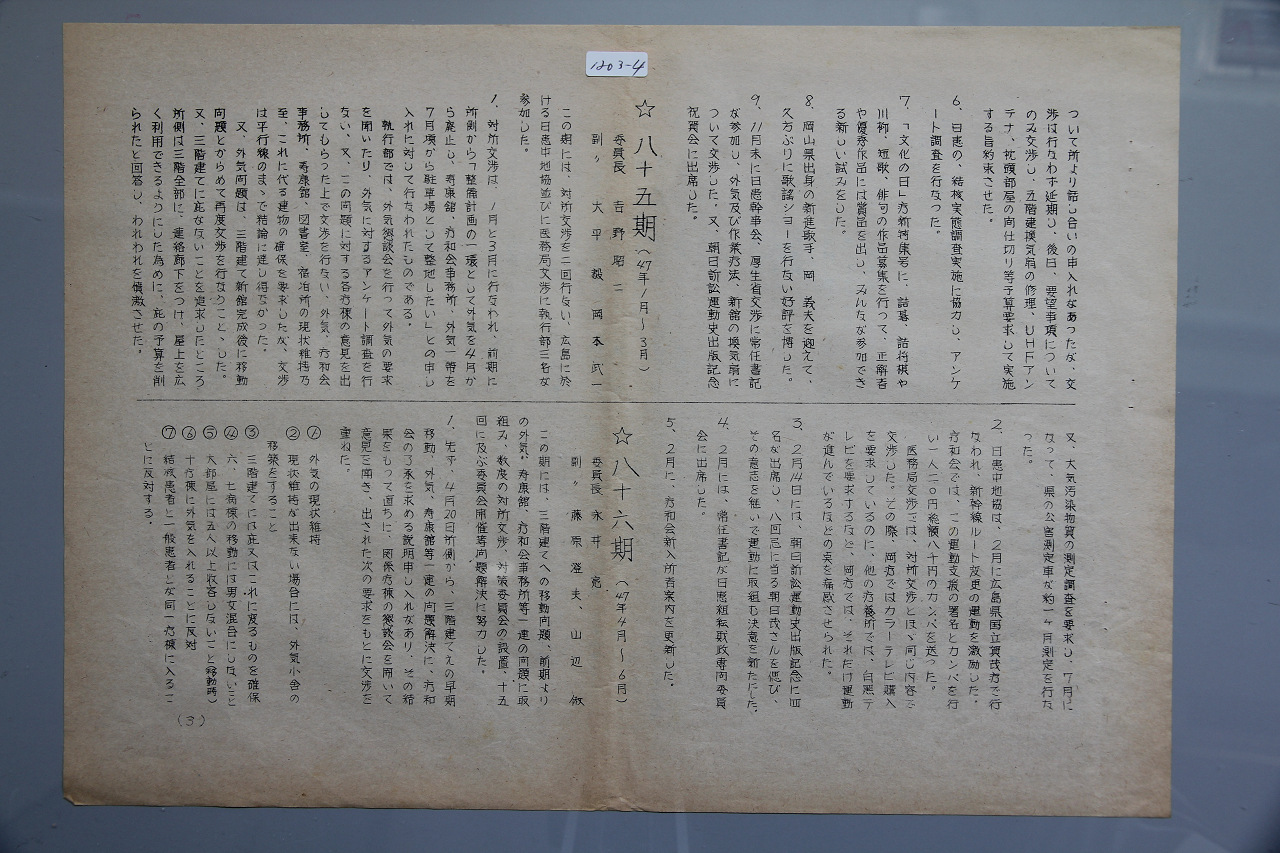 1203-4
ついて所より話し合いの申入れがあったが、交
渉は行なわず延期し、後日、要望事項について
のみ交渉し、五階建換気扇の修理、UHFアン
テナ、枕頭部屋の間仕切り等予算要求して実施
する旨約束させた。
6、日患の、結核実態調査実施に協力し、アンケ
ート調査を行なった。
7、「文化の日」療新特集号に、詰碁、詰将棋や
川柳、短歌、俳句の作品募集を行って、正解者
や優秀作品には賞品を出し、みんなが参加でき
る新しい試みをした。
8、岡山県出身の新進歌手、岡 義夫を迎えて、
久方ぶりに歌謡ショーを行ない好評を博した。
9、11月末に日患幹事会、厚生省交渉に常任書記
が参加し、外気及び作業療法、新館の換気扇に
ついて交渉した。又、朝日訴訟運動史出版記念
祝賀会に出席した。
☆ 八十五期 (47年1月~3月)
委員長 吉野昭二
副〃 大平 毅 岡本武一
この期には、対所交渉を二回行ない、広島に於
ける日患中地協並びに医務局交渉に執行部三名が
参加した。
1、対所交渉は、1月と3月に行なわれ、前期に
所側から「整備計画の一環として外気を4月か
ら廃止し、寿康館、療和会事務所、外気一帯を
7月頃から駐車場として整地したい」との申し
入れに対して行なわれたものである。
執行部では、外気懇談会を行って外気の要求
を聞いたり、外気に対するアンケート調査を行
ない、又、この問題に対する各療棟の意見を出
してもらった上で交渉を行ない、外気、療和会
事務所、寿康館、図書室、宿泊所の現状維持乃
至、これに代る建物の確保を要求したが、交渉
は平行線のまゝで結論に達し得なかった。
又、外気問題は、三階建て新館完成後に移動
問題とからめて再度交渉を行なうことゝした。
又、三階建てに庇がないことを追求したところ
所側は三階全部に、連絡廊下をつけ、屋上を広
く利用できるようにした為めに、庇の予算を削
られたと回答し、われわれを憤激させた。
又、大気汚染物質の測定調査を要求し、7月に
なって、県の公害測定車が約一ヶ月測定を行な
った。
2、日患中地協は、2月に広島県国立賀茂療で行
なわれ、新幹線ルート変更の運動を激励した。
療和会では、この運動支援の署名とカンパを行
い一人二〇円総額八千円のカンパを送った。
医務局交渉では、対所交渉とほゞ同じ内容で
交渉した。その際、岡療ではカラーテレビ購入
を要求しているのに、他の療養所では、白黒テ
レビを要求するなど、岡療では、それだけ運動
が進んでいるなどの点を痛感させられた。
3、2月14日には、朝日訴訟運動史出版記念に四
名が出席し、八回忌に当る朝日茂さんを偲び、
その意志を継いで運動に取組む決意を新たにした。
4、2月には、常任書記が日患組転財政専門委員
会に出席した。
5、2月に、療和会新入所者案内を更新した。
☆ 八十六期 (47年4月~6月)
委員長 永井 亮
副〃 藤原澄夫、山辺 俶
この期には、三階建てへの移動問題、前期より
の外気、寿康館、療和会事務所等一連の問題に取
組み、数度の対所交渉、対策委員会の設置、十五
回に及ぶ委員会開催等問題解決に努力した。
1、先ず、4月20日所側から、三階建てえの早期
移動、外気、寿康館等一連の問題解決に、療和
会の了承を求める説明申し入れがあり、その結
果をもって直ちに、関係療棟の懇談会を開いて
意見を聞き、出された次の要求をもとに交渉を
重ねた。
① 外気の現状維持
② 現状維持が出来ない場合には、外気小舎の
移築をすること
③ 三階建てには庇又はこれに変るものを確保
④ 六、七病棟の移動には男女混合にしないこと
⑤ 大部屋には五人以上収容しないこと(移動時)
⑥ 十療棟に外気を入れることに反対
⑦ 結核患者と一般患者とが同一療棟に入るこ
とに反対する。
(3)